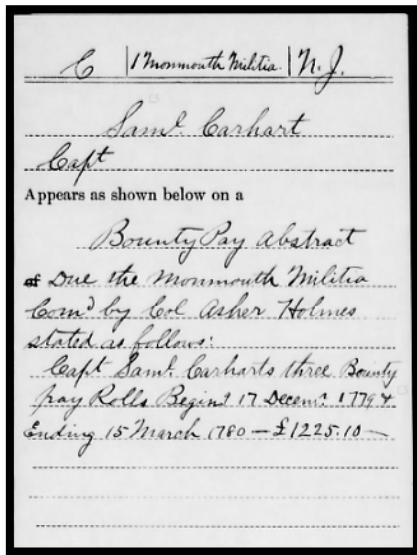 C | 1 Monmouth Militia. | N. J.
Saml. Carhart
Capt
Appears as shown below on a
Bounty Pay Abstract
of Due the Monmouth Militia
Comd by Col Asher Holmes
stated as follows:
Capt Saml. Carharts three Bounty
pay Rolls Begint 17 Decemr. 1779 &
Ending 15 March 1780 — £1225.10 —